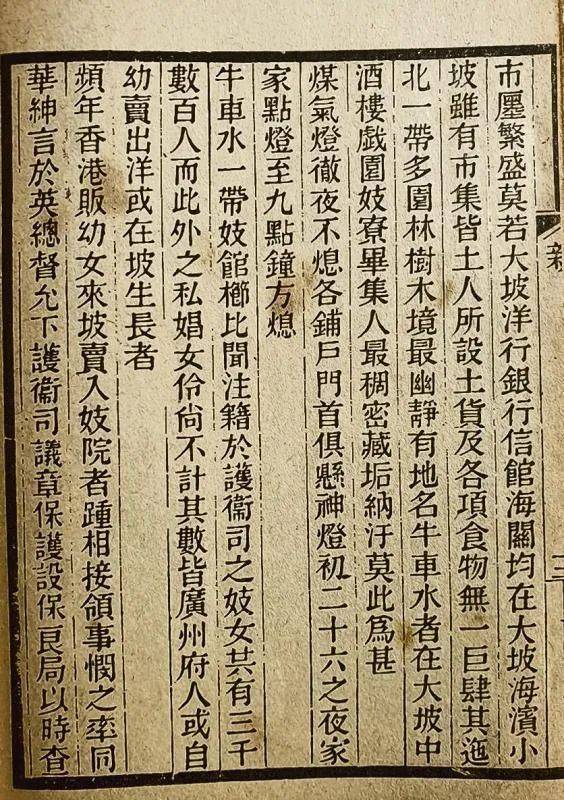 市廛繁盛莫若大坡洋行銀行信館海關均在大坡海濱小
坡雖有市集皆土人所設土貨及各項食物無一巨肆其迤
北一帶多園林樹木境最幽靜有地名牛車水者在大坡中
酒樓戲園妓寮畢集人最稠密藏垢納汙莫此爲甚
煤氣燈徹夜不熄各鋪戶門首俱懸神燈初二十六之夜家
家點燈至九點鐘方熄
牛車水一帶妓館櫛比聞注籍於護衞司之妓女共有三千
數百人而此外之私娼女伶尙不計其數皆廣州府人或自
幼賣出洋或在坡生長者
頻年香港販幼女來坡賣入妓院者踵相接領事憫之率同
華紳言於英總督允下護衞司議章保護設保良局以時查